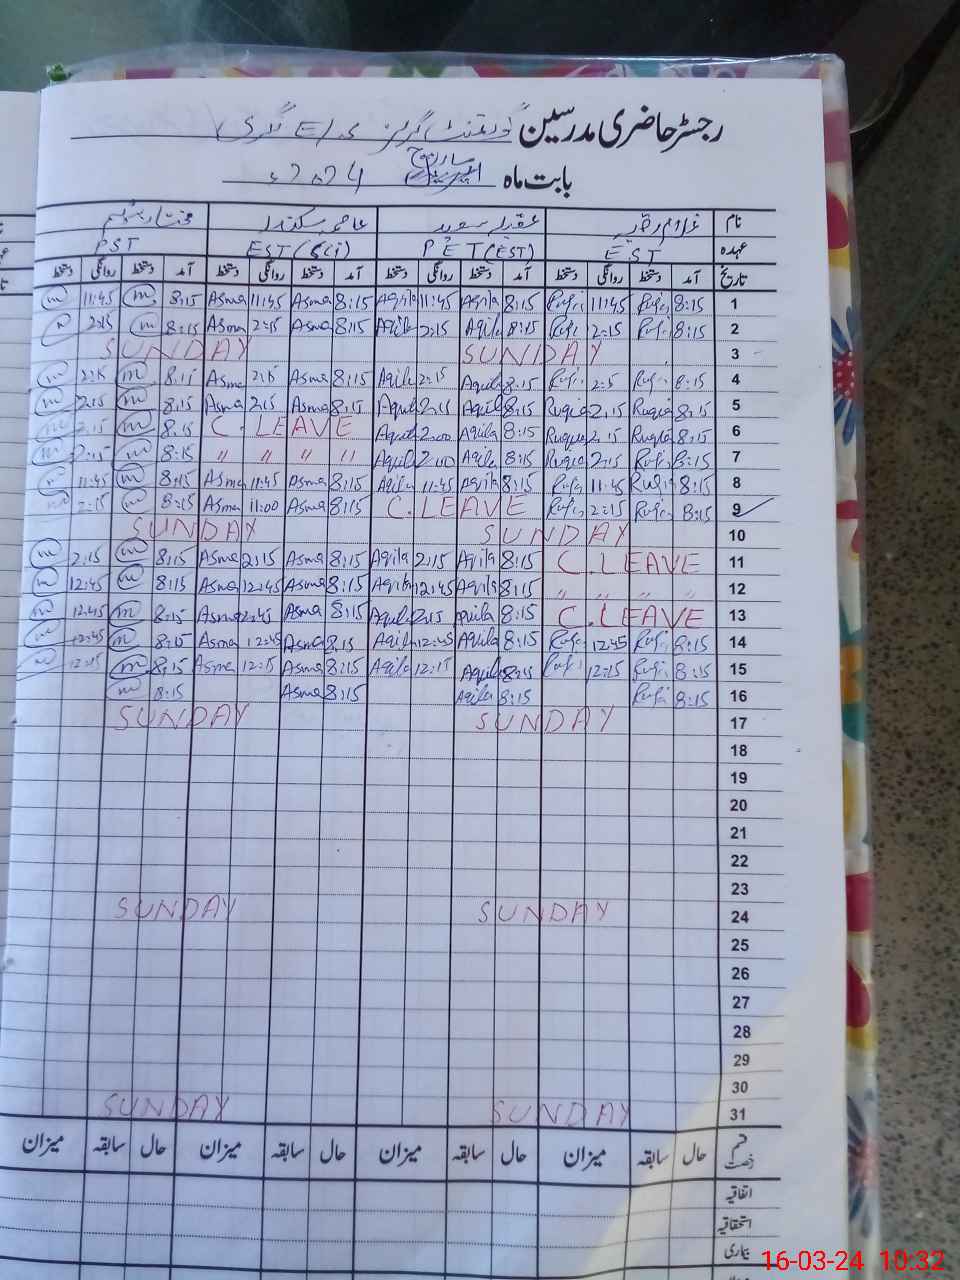 رجسٹر حاضری مدرسین گورنمنٹ گرلز
بابت ماہ مارچ 2024ء
نام غلام رقیہ عقیلہ سعید عاصمہ سکندر
عہدہ EST PET(EST) EST(Sci) PST
تاریخ آمد دستخط روانگی دستخط آمد دستخط روانگی دستخط آمد دستخط روانگی دستخط آمد دستخط روانگی دستخط
m 11:45 m 8:15 Asma 11:45 Asma 8:15 Aqila 11:45 Aqila 8:15 11:45 8:15 1
m 2:15 m 8:15 Asma 2:15 Asma 8:15 Aqila 2:15 Aqila 8:15 2:15 8:15 2
SUNDAY SUNDAY 3
m 2:15 m 8:15 Asma 2:15 Asma 8:15 Aqila 2:15 Aqila 8:15 2:5 8:15 4
m 2:15 m 8:15 Asma 2:15 Asma 8:15 Aqila 2:15 Aqila 8:15 Ruqia 2:15 Ruqia 8:15 5
m 2:15 m 8:15 C. LEAVE Aqila 2:00 Aqila 8:15 Ruqia 2:15 Ruqia 8:15 6
m 2:15 m 8:15 " " " " Aqila 2:00 Aqila 8:15 Ruqia 2:15 8:15 7
m 11:45 m 8:15 Asma 11:45 Asma 8:15 Aqila 11:45 Aqila 8:15 11:45 8:15 8
m 2:15 m 8:15 Asma 11:00 Asma 8:15 C. LEAVE 2:15 8:15 9
SUNDAY SUNDAY 10
m 2:15 m 8:15 Asma 2:15 Asma 8:15 Aqila 2:15 Aqila 8:15 C. LEAVE 11
m 12:45 m 8:15 Asma 12:45 Asma 8:15 Aqila 12:45 Aqila 8:15 " " " " 12
m 12:45 m 8:15 Asma 12:45 Asma 8:15 Aqila 2:15 Aqila 8:15 C. LEAVE 13
m 12:45 m 8:15 Asma 12:45 Asma 8:15 Aqila 12:45 Aqila 8:15 12:45 8:15 14
m 12:15 m 8:15 Asma 12:15 Asma 8:15 Aqila 12:15 Aqila 8:15 12:15 8:15 15
m 8:15 Asma 8:15 Aqila 8:15 8:15 16
SUNDAY SUNDAY 17
18
19
20
21
22
23
SUNDAY SUNDAY 24
25
26
27
28
29
30
SUNDAY SUNDAY 31
قسم رخصت حال سابقہ میزان حال سابقہ میزان حال سابقہ میزان حال سابقہ میزان
اتفاقیہ
استحقاقیہ
بیماری
16-03-24 10:32